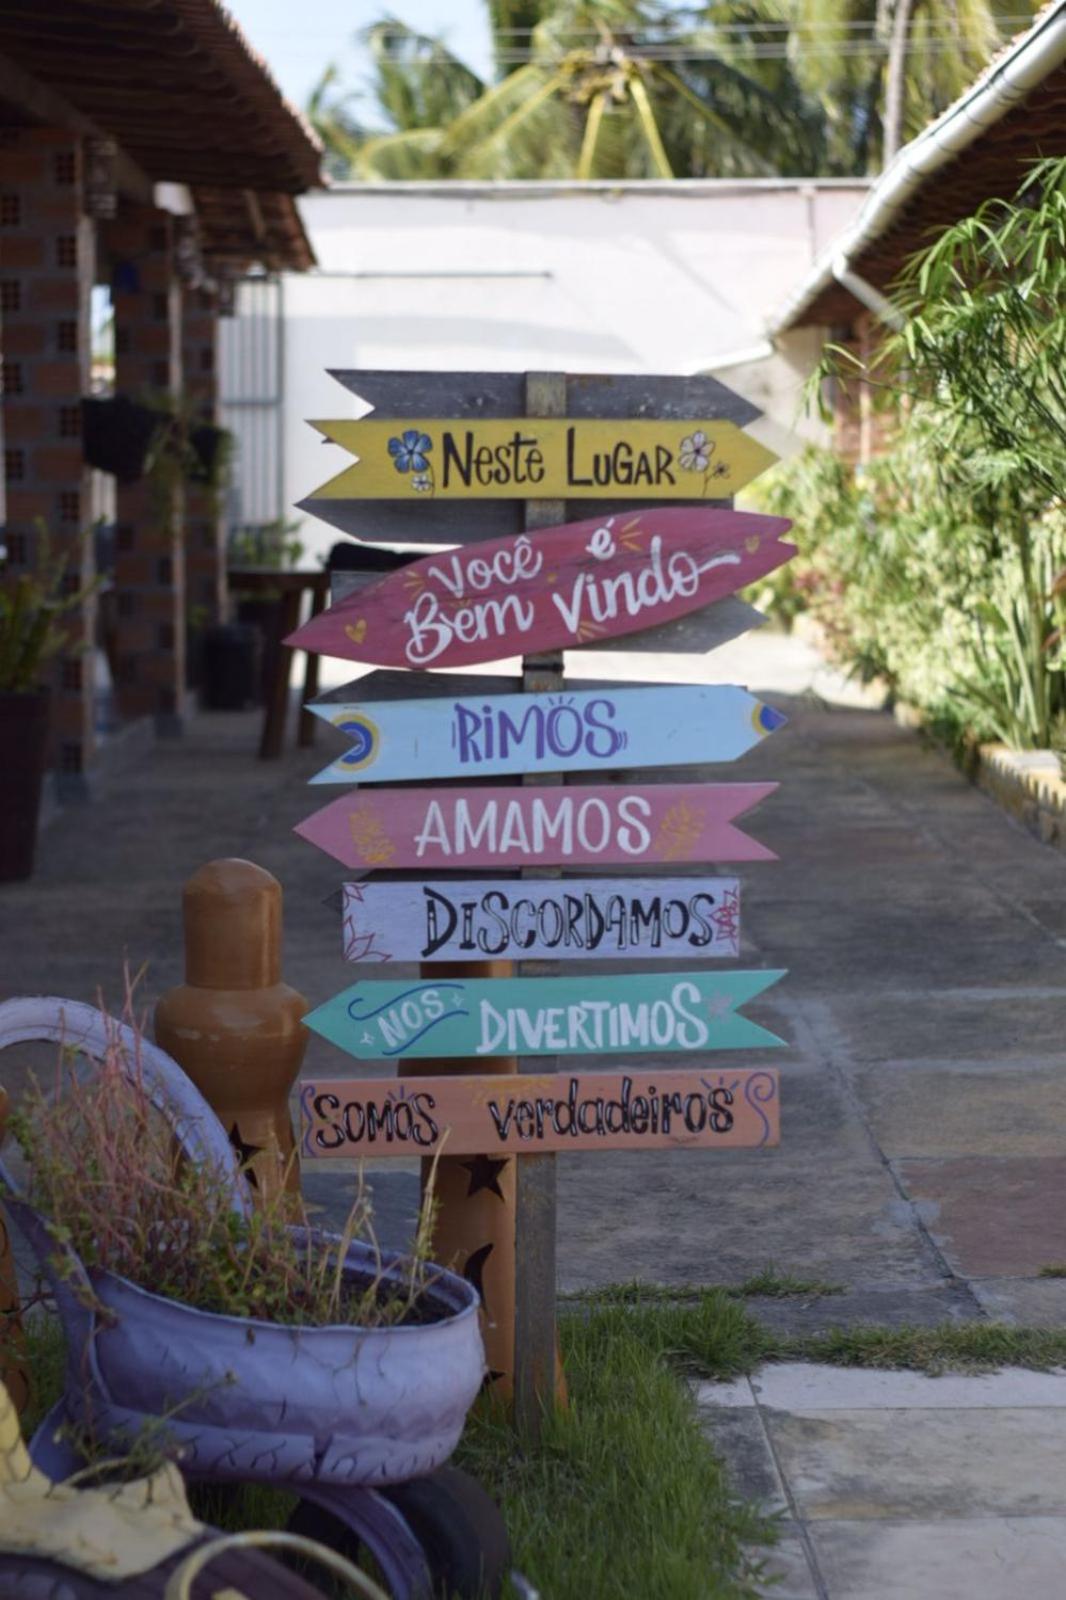 Neste Lugar
Você é
Bem Vindo
Rimos
AMAMOS
DISCORDAMOS
NOS DIVERTIMOS
Somos verdadeiros